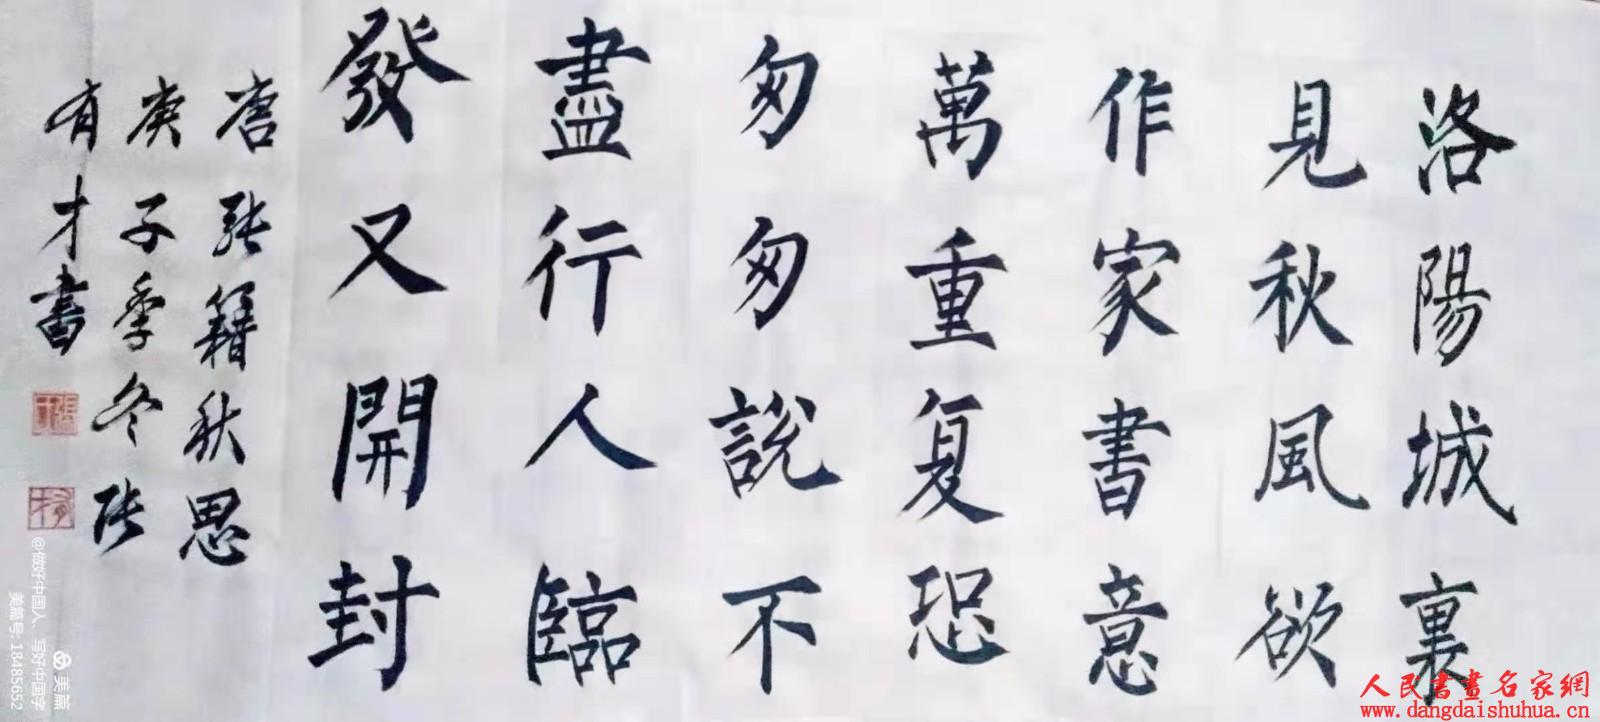 洛陽城裏
見秋風欲
作家書意
萬重复恐
匆匆說不
盡行人臨
發又開封
唐張籍秋思
庚子季冬張
有才書
@做好中国人、写好中国字
美篇号:18485652
美篇
人民書畫名家網
www.dangdaishuhua.cn